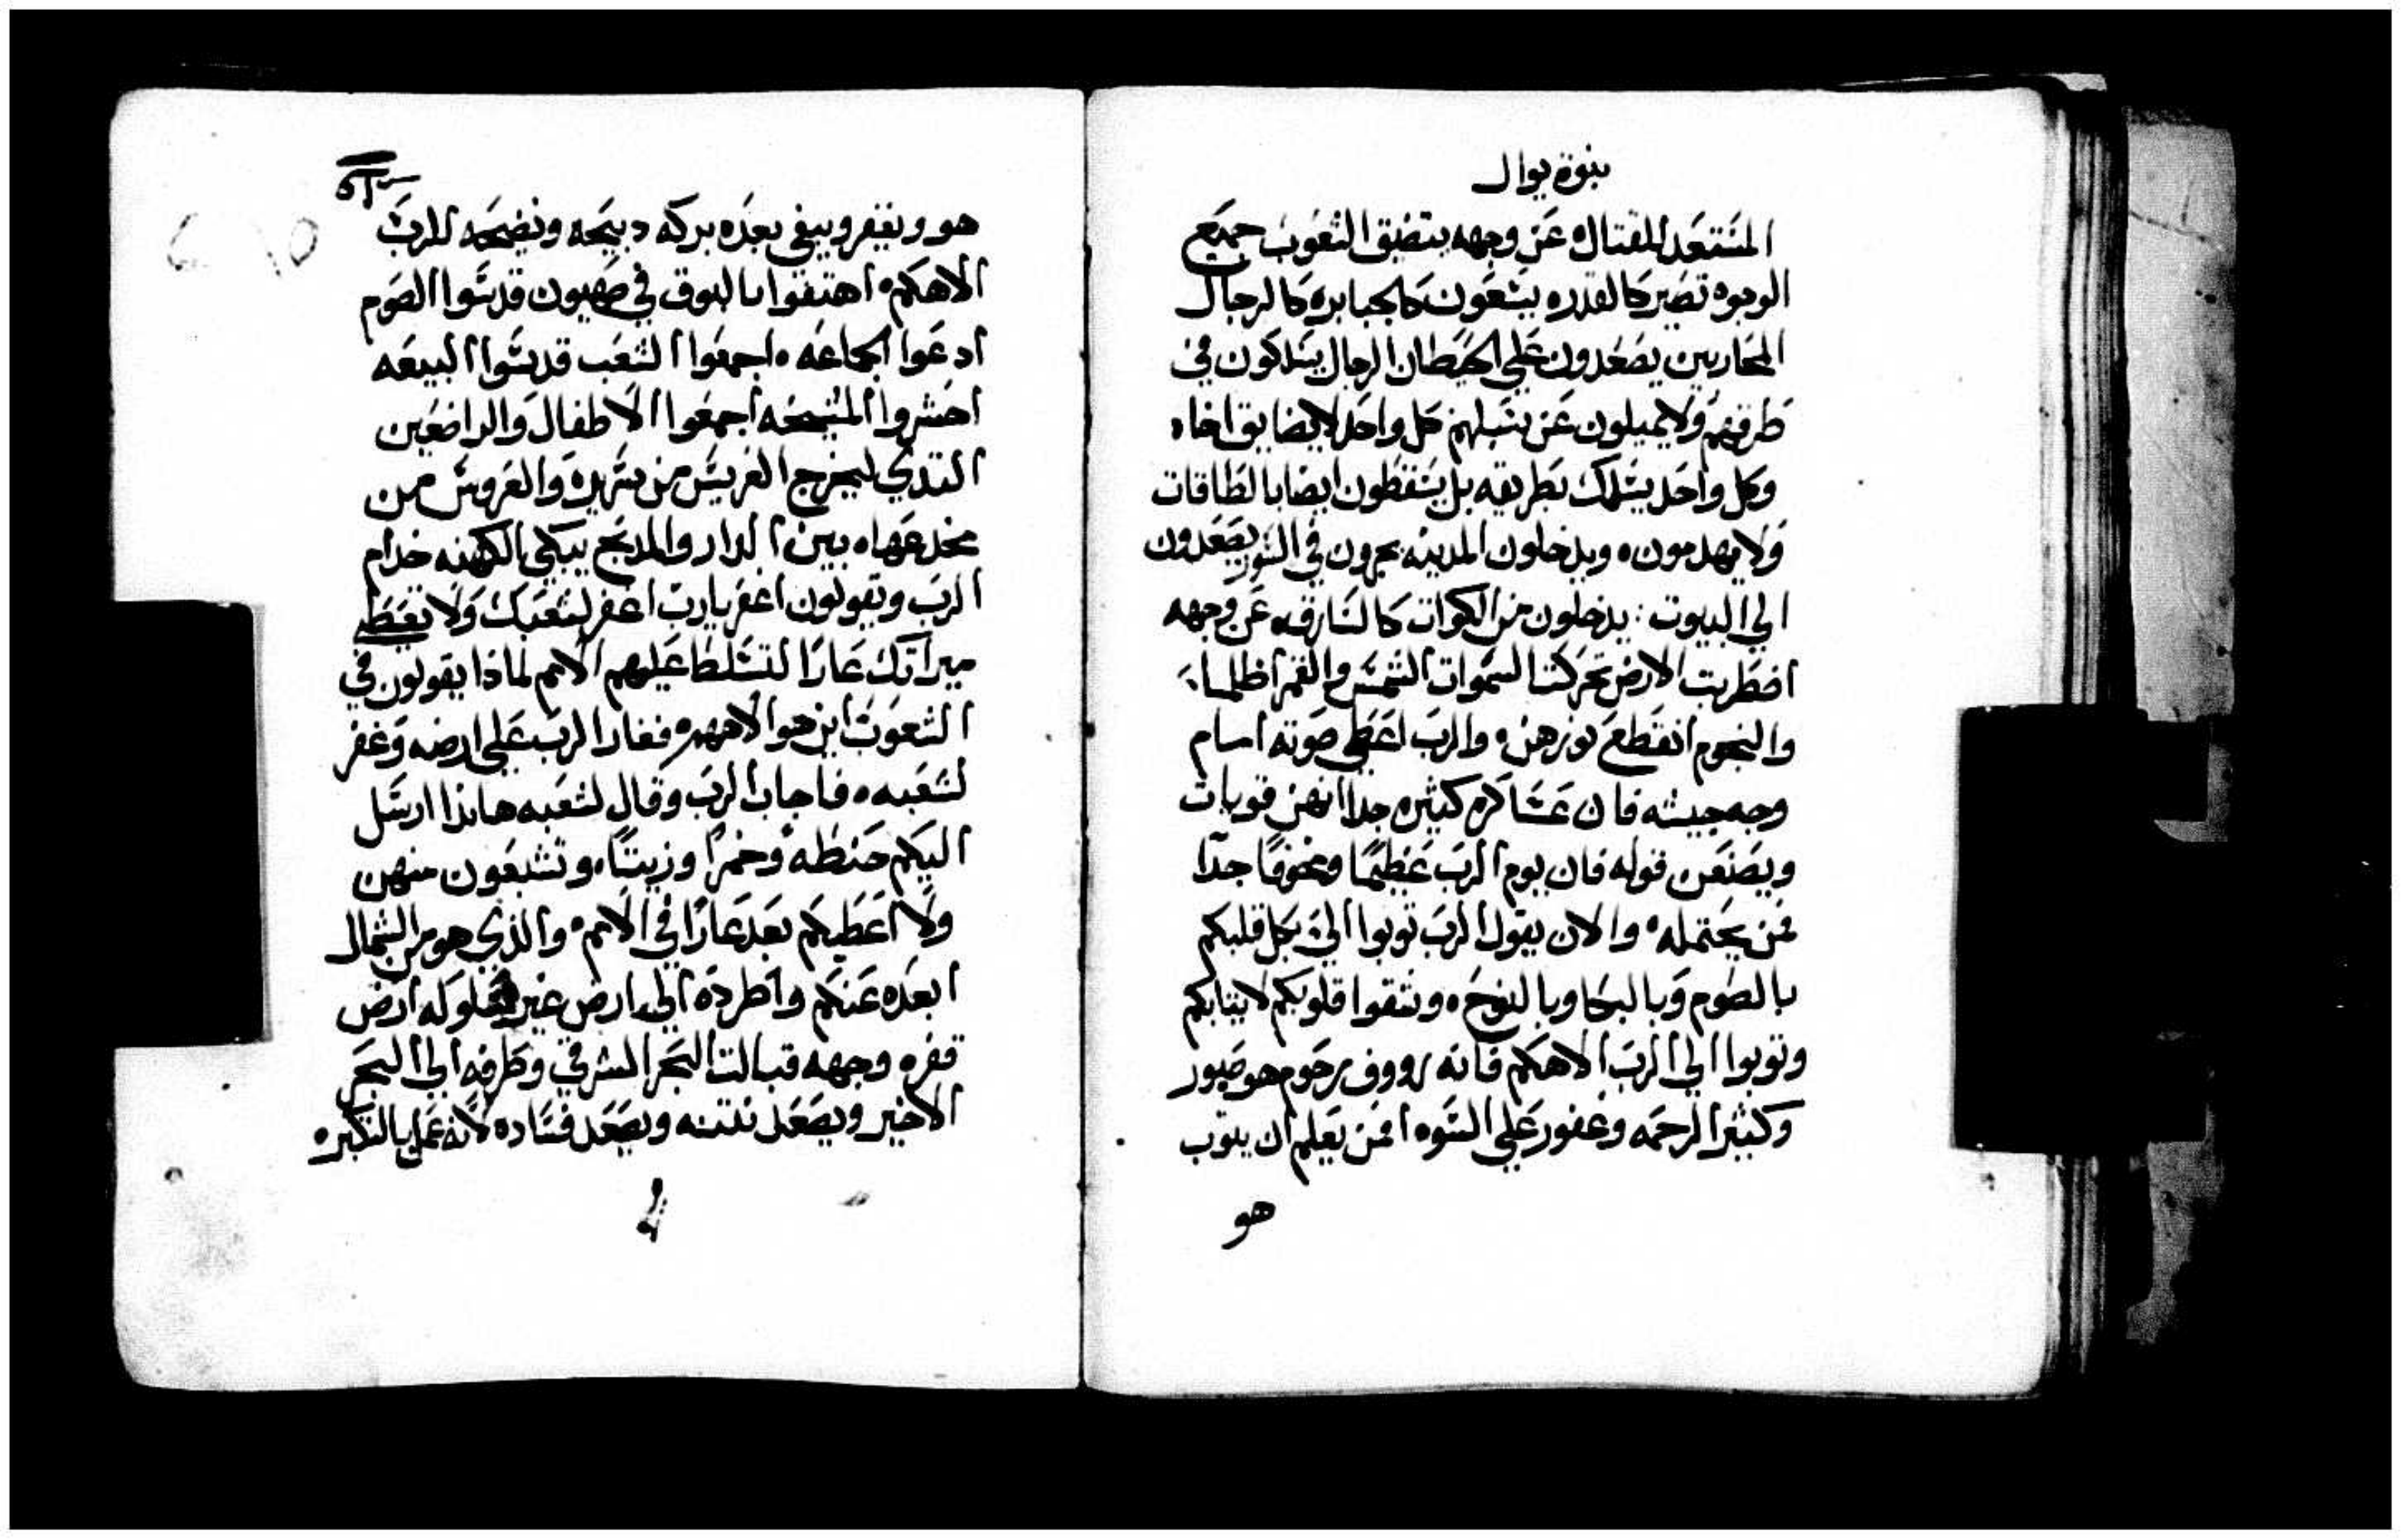 بنوة يوال
المستعد للقتال ه عن وجهه يتضيق الشعوب جميع
الوجوه تصير كالقدره يسعون كالجبابره كالرجال
المحاربين يصعدون علي الحيطان الرجال يسلكون في
طرقهم ولا يميلون عن سبلهم كل واحد لا يضايق اخاه
وكل واحد يسلك بطريقه بل يسقطون ايضا بالطاقات
ولا يهدمون ه ويدخلون المدينه يجرون في السور يصعدون
الي البيوت : يدخلون من الكوات كالسارق ه عن وجهه
اضطربت الارض تحركت السموات الشمس والقمر اظلما
والنجوم انقطع نورهن ه والرب اعطي صوته امام
وجه جيشه فان عساكره كثيره جدا انهن قويات
ويصنعن قوله فان يوم الرب عظيما ومخوفا جدا
فمن يحتمله ه والان يقول الرب توبوا الي بكل قلبكم
بالصوم وبالبكا وبالنوح ه وشقوا قلوبكم لا ثيابكم
وتوبوا الي الرب الاهكم فانه رووف رحوم هو صبور
وكثير الرحمه وغفور علي السوه افمن يعلم ان يتوب
هو
هو ويغفر ويبقي بعده بركه دبيحه ونضيحه للرب
الاهكم ه اهتفوا بالبوق في صهيون قدسوا الصوم
ادعوا الجماعه ه اجمعوا الشعب قدسوا البيعه
احشروا المشيخه اجمعوا الاطفال والراضعين
التدي ليخرج العريس من سريره والعروس من
مخدعها ه بين الدار والمدبح يبكي الكهنه خدام
الرب ويقولون اغفر يارب اغفر لشعبك ولا تعط
ميراتك عارا لتسلط عليهم الامم لماذا يقولون في
الشعوب اين هو الاههم ه فغار الرب علي ارضه وغفر
لشعبه ه فاجاب الرب وقال لشعبه هانذا ارسل
اليكم حنطه وخمرا وزيتا ه وتشبعون منهن
ولا اعطيكم بعد عارا في الامم ه والذي هو من الشمال
ابعده عنكم واطرده الي ارض غير مسلوكه ارض
قفره وجهه قبالت البحر الشرقي وطرفه الي البحر
الاخير ويصعد نتنه ويصعد فساده لانه عمل بالتكبره